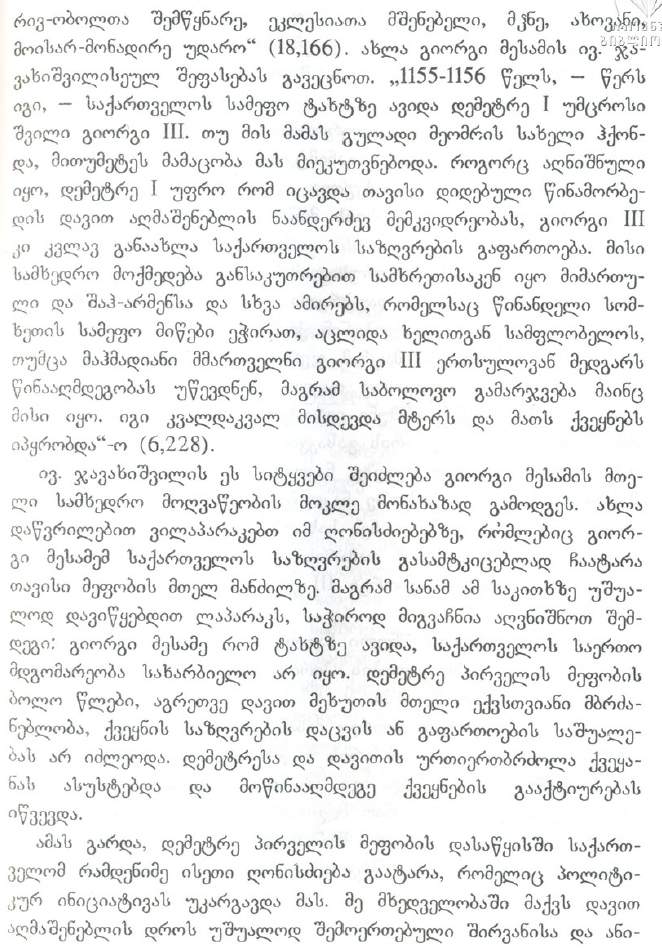 რივ-ობოლთა შემწყნარე, ეკლესიათა მშენებელი, მკნე, ახოვანი,
მოისარ-მონადირე უდარო“ (18,166). ახლა გიორგი მესამის ივ. ჯა-
ვახიშვილისეულ შეფასებას გავეცნოთ. „1155-1156 წელს, — წერს
იგი, — საქართველოს სამეფო ტახტზე ავიდა დემეტრე I უმცროსი
შვილი გიორგი III. თუ მის მამას გულადი მეომრის სახელი ჰქონ-
და, მითუმეტეს მამაცობა მას მიეკუთვნებოდა. როგორც აღნიშნული
იყო, დემეტრე I უფრო რომ იცავდა თავისი დიდებული წინამორბე-
დის დავით აღმაშენებლის ნაანდერძევ მემკვიდრეობას, გიორგი III
კი კვლავ განაახლა საქართველოს საზღვრების გაფართოება. მისი
სამხედრო მოქმედება განსაკუთრებით სამხრეთისაკენ იყო მიმართუ-
ლი და შაჰ-არმენსა და სხვა ამირებს, რომელსაც წინანდელი სომ-
ხეთის სამეფო მიწები ეჭირათ, აცლიდა ხელითგან სამფლობელოს,
თუმცა მაჰმადიანი მმართველნი გიორგი III ერთსულოვან მედგარს
წინააღმდეგობას უწევდნენ, მაგრამ საბოლოვო გამარჯვება მაინც
მისი იყო. იგი კვალდაკვალ მისდევდა მტერს და მათს ქვეყნებს
იპყრობდა“-ო (6,228).
ივ. ჯავახიშვილის ეს სიტყვები შეიძლება გიორგი მესამის მთე-
ლი სამხედრო მოღვაწეობის მოკლე მონახაზად გამოდგეს. ახლა
დაწვრილებით ვილაპარაკებთ იმ ღონისძიებებზე, რომლებიც გიორ-
გი მესამემ საქართველოს საზღვრების გასამტკიცებლად ჩაატარა
თავისი მეფობის მთელ მანძილზე. მაგრამ სანამ ამ საკითხზე უშუა-
ლოდ დავიწყებდით ლაპარაკს, საჭიროდ მიგვაჩნია აღვნიშნოთ შემ-
დეგი: გიორგი მესამე რომ ტახტზე ავიდა, საქართველოს საერთო
მდგომარეობა სახარბიელო არ იყო. დემეტრე პირველის მეფობის
ბოლო წლები, აგრეთვე დავით მეხუთის მთელი ექვსთვიანი მბრძა-
ნებლობა, ქვეყნის საზღვრების დაცვის ან გაფართოების საშუალე-
ბას არ იძლეოდა. დემეტრესა და დავითის ურთიერთბრძოლა ქვეყა-
ნას ასუსტებდა და მოწინააღმდეგე ქვეყნების გააქტიურებას
იწვევდა.
ამას გარდა, დემეტრე პირველის მეფობის დასაწყისში საქართ-
ველომ რამდენიმე ისეთი ღონისძიება გაატარა, რომელიც პოლიტი-
კურ ინიციატივას უკარგავდა მას. მე მხედველობაში მაქვს დავით
აღმაშენებლის დროს უშუალოდ შემოერთებული შირვანისა და ანი-